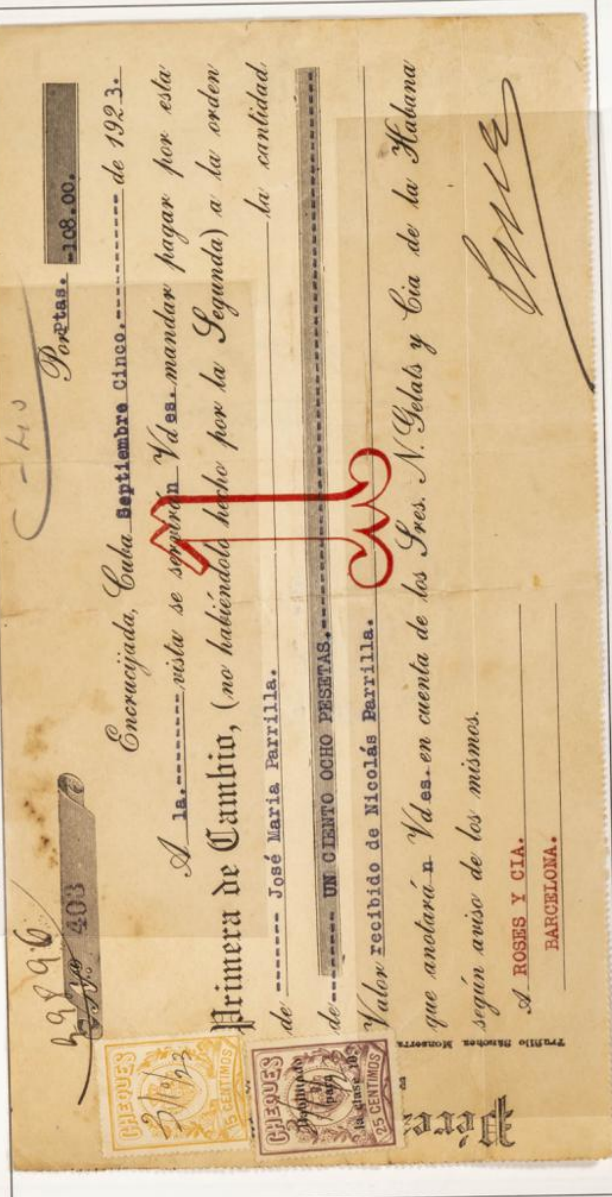 39896
Nº 403
Por Ptas. -108.00.
Encrucijada, Cuba Septiembre Cinco.--------- de 1923.
A la.--------- vista se servirán Vdes. mandar pagar por esta
Primera de Cambio, (no habiéndolo hecho por la Segunda) a la orden
de ------- José Maria Parrilla. la cantidad
de ------- UN CIENTO OCHO PESETAS.
Valor recibido de Nicolás Parrilla.
que anotarán Vdes. en cuenta de los Sres. N. Gelats y Cia de la Habana
según aviso de los mismos.
A ROSES Y CIA.
BARCELONA.
CHEQUES
3/10/23
15 CENTIMOS
CHEQUES
Habilitado
para
la clase 10ª
25 CENTIMOS
Trujillo Sánchez Monserra
Pére